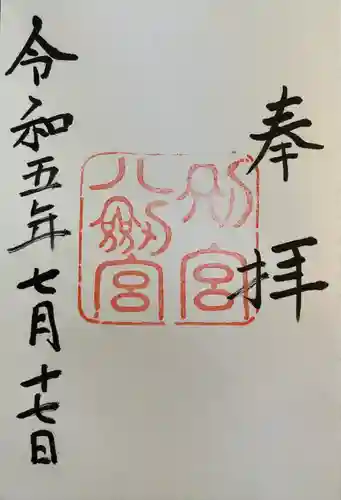 奉拝
八剱宮
別宮
令和五年七月十七日